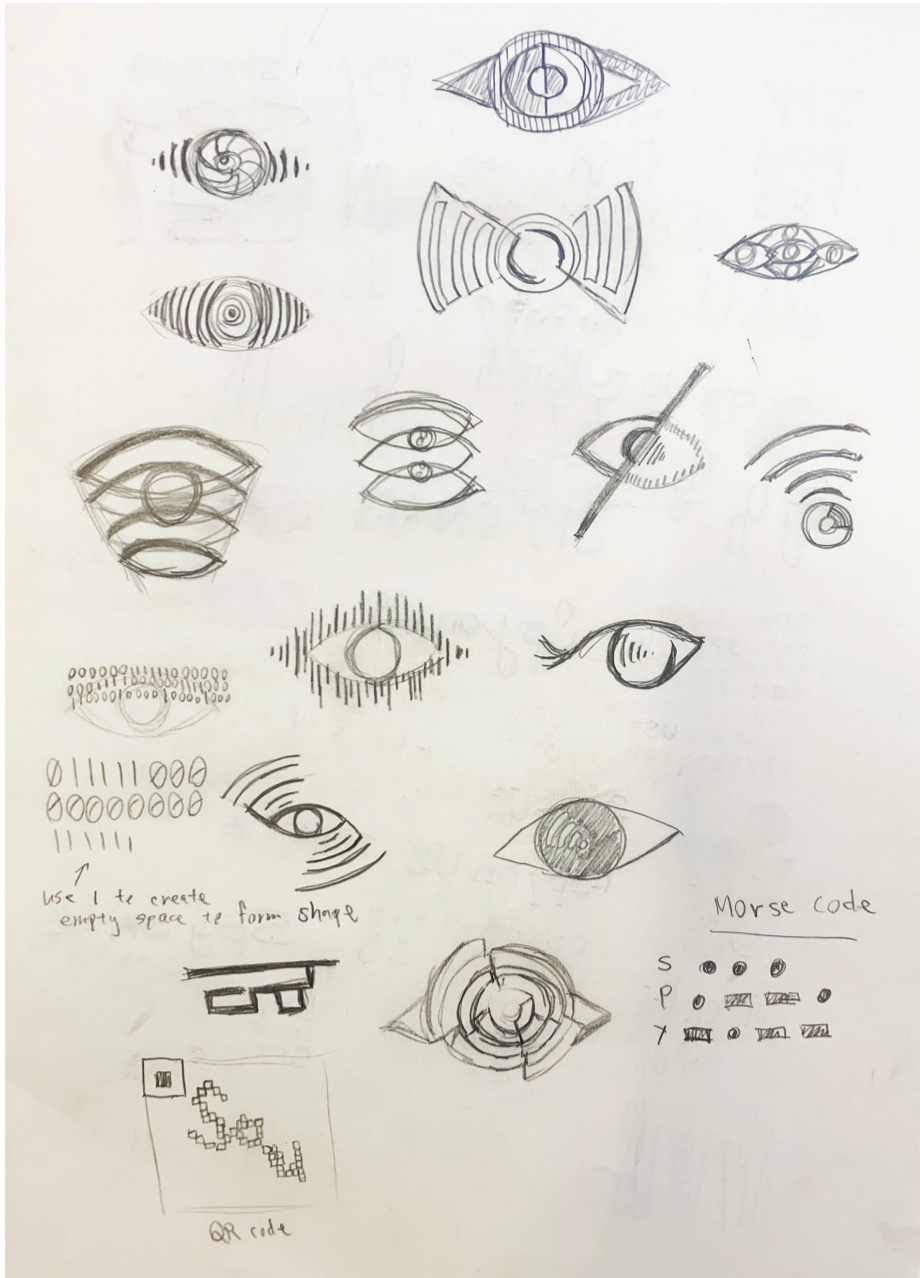 0111111000
00000000
111111
use 1 to create
empty space to form shape
Morse code
S
P
Y
Spy
QR code